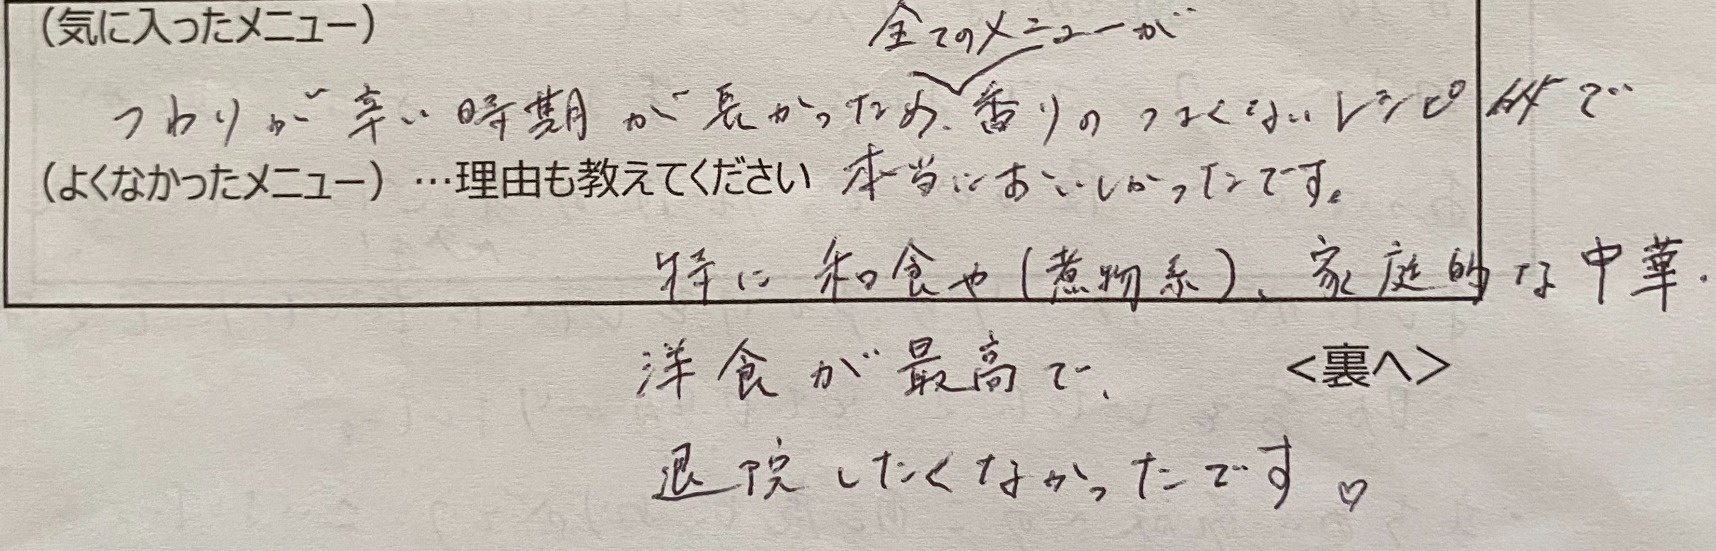 (気に入ったメニュー)
全てのメニューが
つわりが辛い時期が長かったため、香りのつよくないレシピで
(よくなかったメニュー)…理由も教えてください
本当においしかったです。
特に和食や(煮物系)、家庭的な中華.
洋食が最高で、
<裏へ>
退院したくなかったです♡